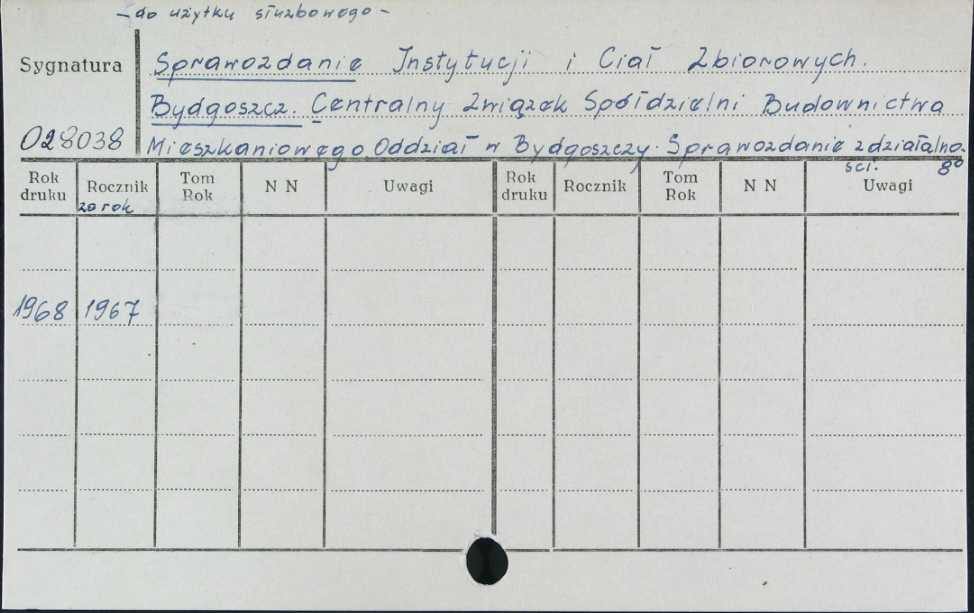 - do użytku służbowego -
Sygnatura
028038
Sprawozdanie Instytucji i Ciał Zbiorowych.
Bydgoszcz. Centralny Związek Spółdzielni Budownictwa
Mieszkaniowego Oddział w Bydgoszczy. Sprawozdanie z działalno-
ści. 8°
Rok druku Rocznik Tom Rok N N Uwagi Rok druku Rocznik Tom Rok N N Uwagi
za rok
1968 1967